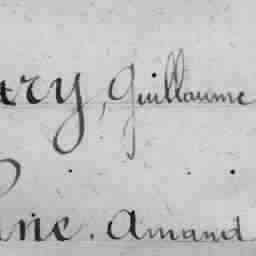 ary, Guillaume
rie. Amand